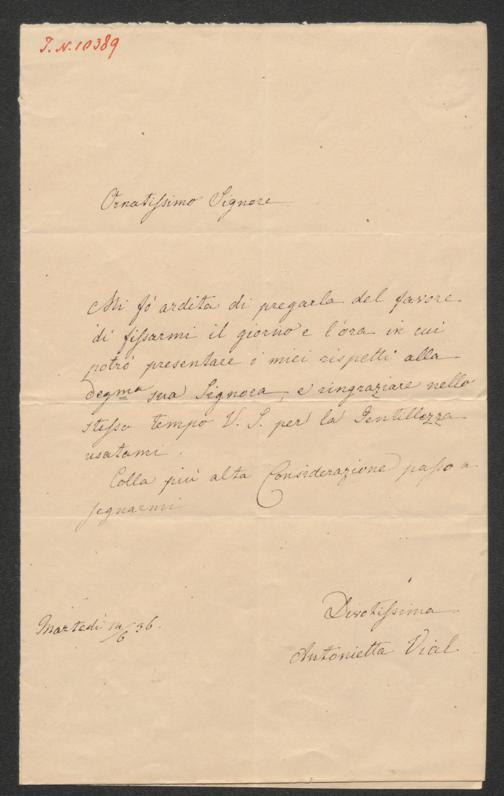 I. N. 10389
Ornatissimo Signore
Mi fò ardita di pregarla del favore
di fissarmi il giorno e l'ora in cui
potrò presentare i miei rispetti alla
degma sua Signora, e ringraziare nello
stesso tempo V. S. per la Gentillezza
usatami.
Colla più alta Considerazione passo a
segnarmi
Devotissima
Martedì 14/6 36.
Antonietta Vial